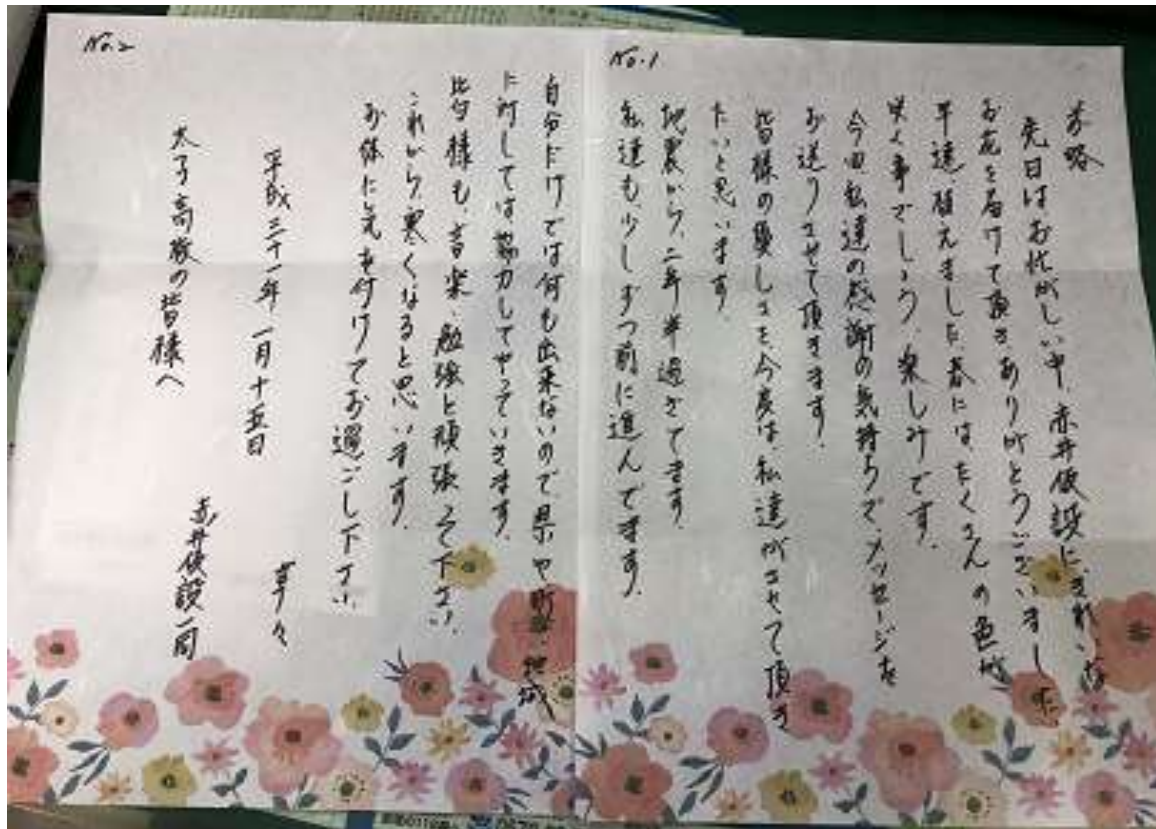 No.1
前略
先日はお忙がしい中、赤井仮設に、きれいな
お花を届けて頂き、ありがとうございました。
早速、植えました。春には、たくさんの色が
咲く事でしょう。楽しみです。
今回、私達の感謝の気持ちで、メッセージを
お送りさせて頂きます。
皆様の優しさを、今度は、私達がさせて頂き
たいと思います。
地震から、二年半過ぎてます。
私達も、少しずつ前に進んでます。
No.2
自分だけでは何も出来ないので県や町、地域
に対しては協力してやっていきます。
皆様も、音楽、勉強と頑張って下さい。
これから、寒くなると思います。
お体に気を付けてお過ごし下さい。
草々
平成三十一年一月十五日
赤井仮設一同
太子高校の皆様へ